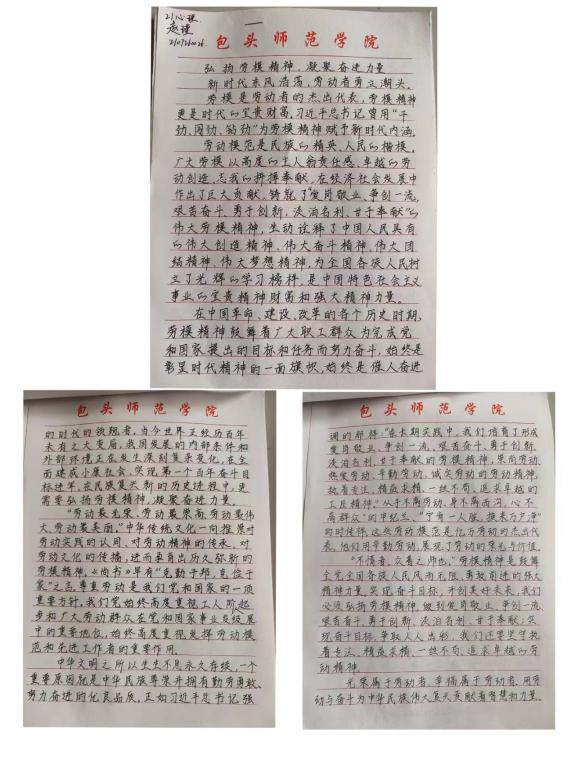 21心理
赵瑾
包头师范学院
弘扬劳模精神,凝聚奋进力量
新时代东风浩荡,劳动者勇立潮头。
劳模是劳动者的杰出代表,劳模精神
更是时代的宝贵财富。习近平总书记曾用“干
劲、闯劲、钻劲”为劳模精神赋予新时代内涵。
劳动模范是民族的精英、人民的楷模。
广大劳模以高度的主人翁责任感、卓越的劳
动创造、忘我的拼搏奉献,在经济社会发展中
作出了巨大贡献,铸就了“爱岗敬业、争创一流,
艰苦奋斗、勇于创新,淡泊名利、甘于奉献”的
伟大劳模精神,生动诠释了中国人民具有
的伟大创造精神、伟大奋斗精神、伟大团
结精神、伟大梦想精神,为全国各族人民树
立了光辉的学习榜样,是中国特色社会主义
事业的宝贵精神财富和强大精神力量。
在中国革命、建设、改革的各个历史时期,
劳模精神鼓舞着广大职工群众为完成党
和国家提出的目标和任务而努力奋斗,始终是
彰显时代精神的一面旗帜,始终是催人奋进
包头师范学院
的时代的领跑者。当今世界正经历百年
未有之大变局,我国发展的内部条件和
外部环境正在发生深刻复杂变化,在全
面建成小康社会、实现第一个百年奋斗目
标进军,在民族复兴新的历史进程中,更
需要弘扬劳模精神,凝聚奋进力量。
“劳动最光荣、劳动最崇高、劳动最伟
大、劳动最美丽。”中华传统文化一向推崇对
劳动实践的认同、对劳动精神的传承、对
劳动文化的传播,进而孕育出历久弥新的
劳模精神。《尚书》早有“克勤于邦,克俭于
家”之言,尊重劳动是我们党和国家的一项
重要方针,我们党始终高度重视工人阶级
和广大劳动群众在党和国家事业发展
中的重要地位,始终高度重视发挥劳动模
范和先进工作者的重要作用。
中华文明之所以生生不息永久存续,一个
重要原因就是中华民族尊崇并拥有勤劳勇敢、
努力奋进的优良品质。正如习近平总书记强
包头师范学院
调的那样:“在长期实践中,我们培育了形成
爱岗敬业、争创一流、艰苦奋斗、勇于创新、
淡泊名利、甘于奉献的劳模精神,崇尚劳动、
热爱劳动、辛勤劳动、诚实劳动的劳动精神,
执着专注、精益求精、一丝不苟、追求卓越的
工匠精神。”从手不离劳动、身不离西沟、心不
离群众”的申纪兰、“宁肯一人脏,换来万户净”
的时传祥,这些劳动模范是亿万劳动的杰出代
表,他们用辛勤劳动,展现了劳动的荣光与价值。
“不惰者,众善之师也。”劳模精神是鼓舞
全党全国各族人民风雨无阻、勇敢前进的强大
精神力量。实现奋斗目标,开创美好未来,我们
必须弘扬劳模精神,做到爱岗敬业、争创一流,
艰苦奋斗、勇于创新,淡泊名利、甘于奉献;实
现奋斗目标,争取人人出彩,我们还要坚守执
着专注、精益求精、一丝不苟、追求卓越的劳
动精神。
光荣属于劳动者,幸福属于劳动者。用劳
动与奋斗为中华民族伟大复兴贡献着智慧和力量。